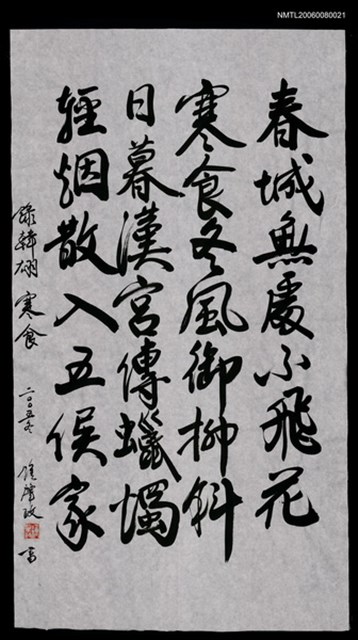 NMTL20060080021
春城無處不飛花
寒食冬風御柳斜
日暮漢宮傳蠟燭
輕烟散入五侯家
錄韓翃 寒食 二〇〇五 書